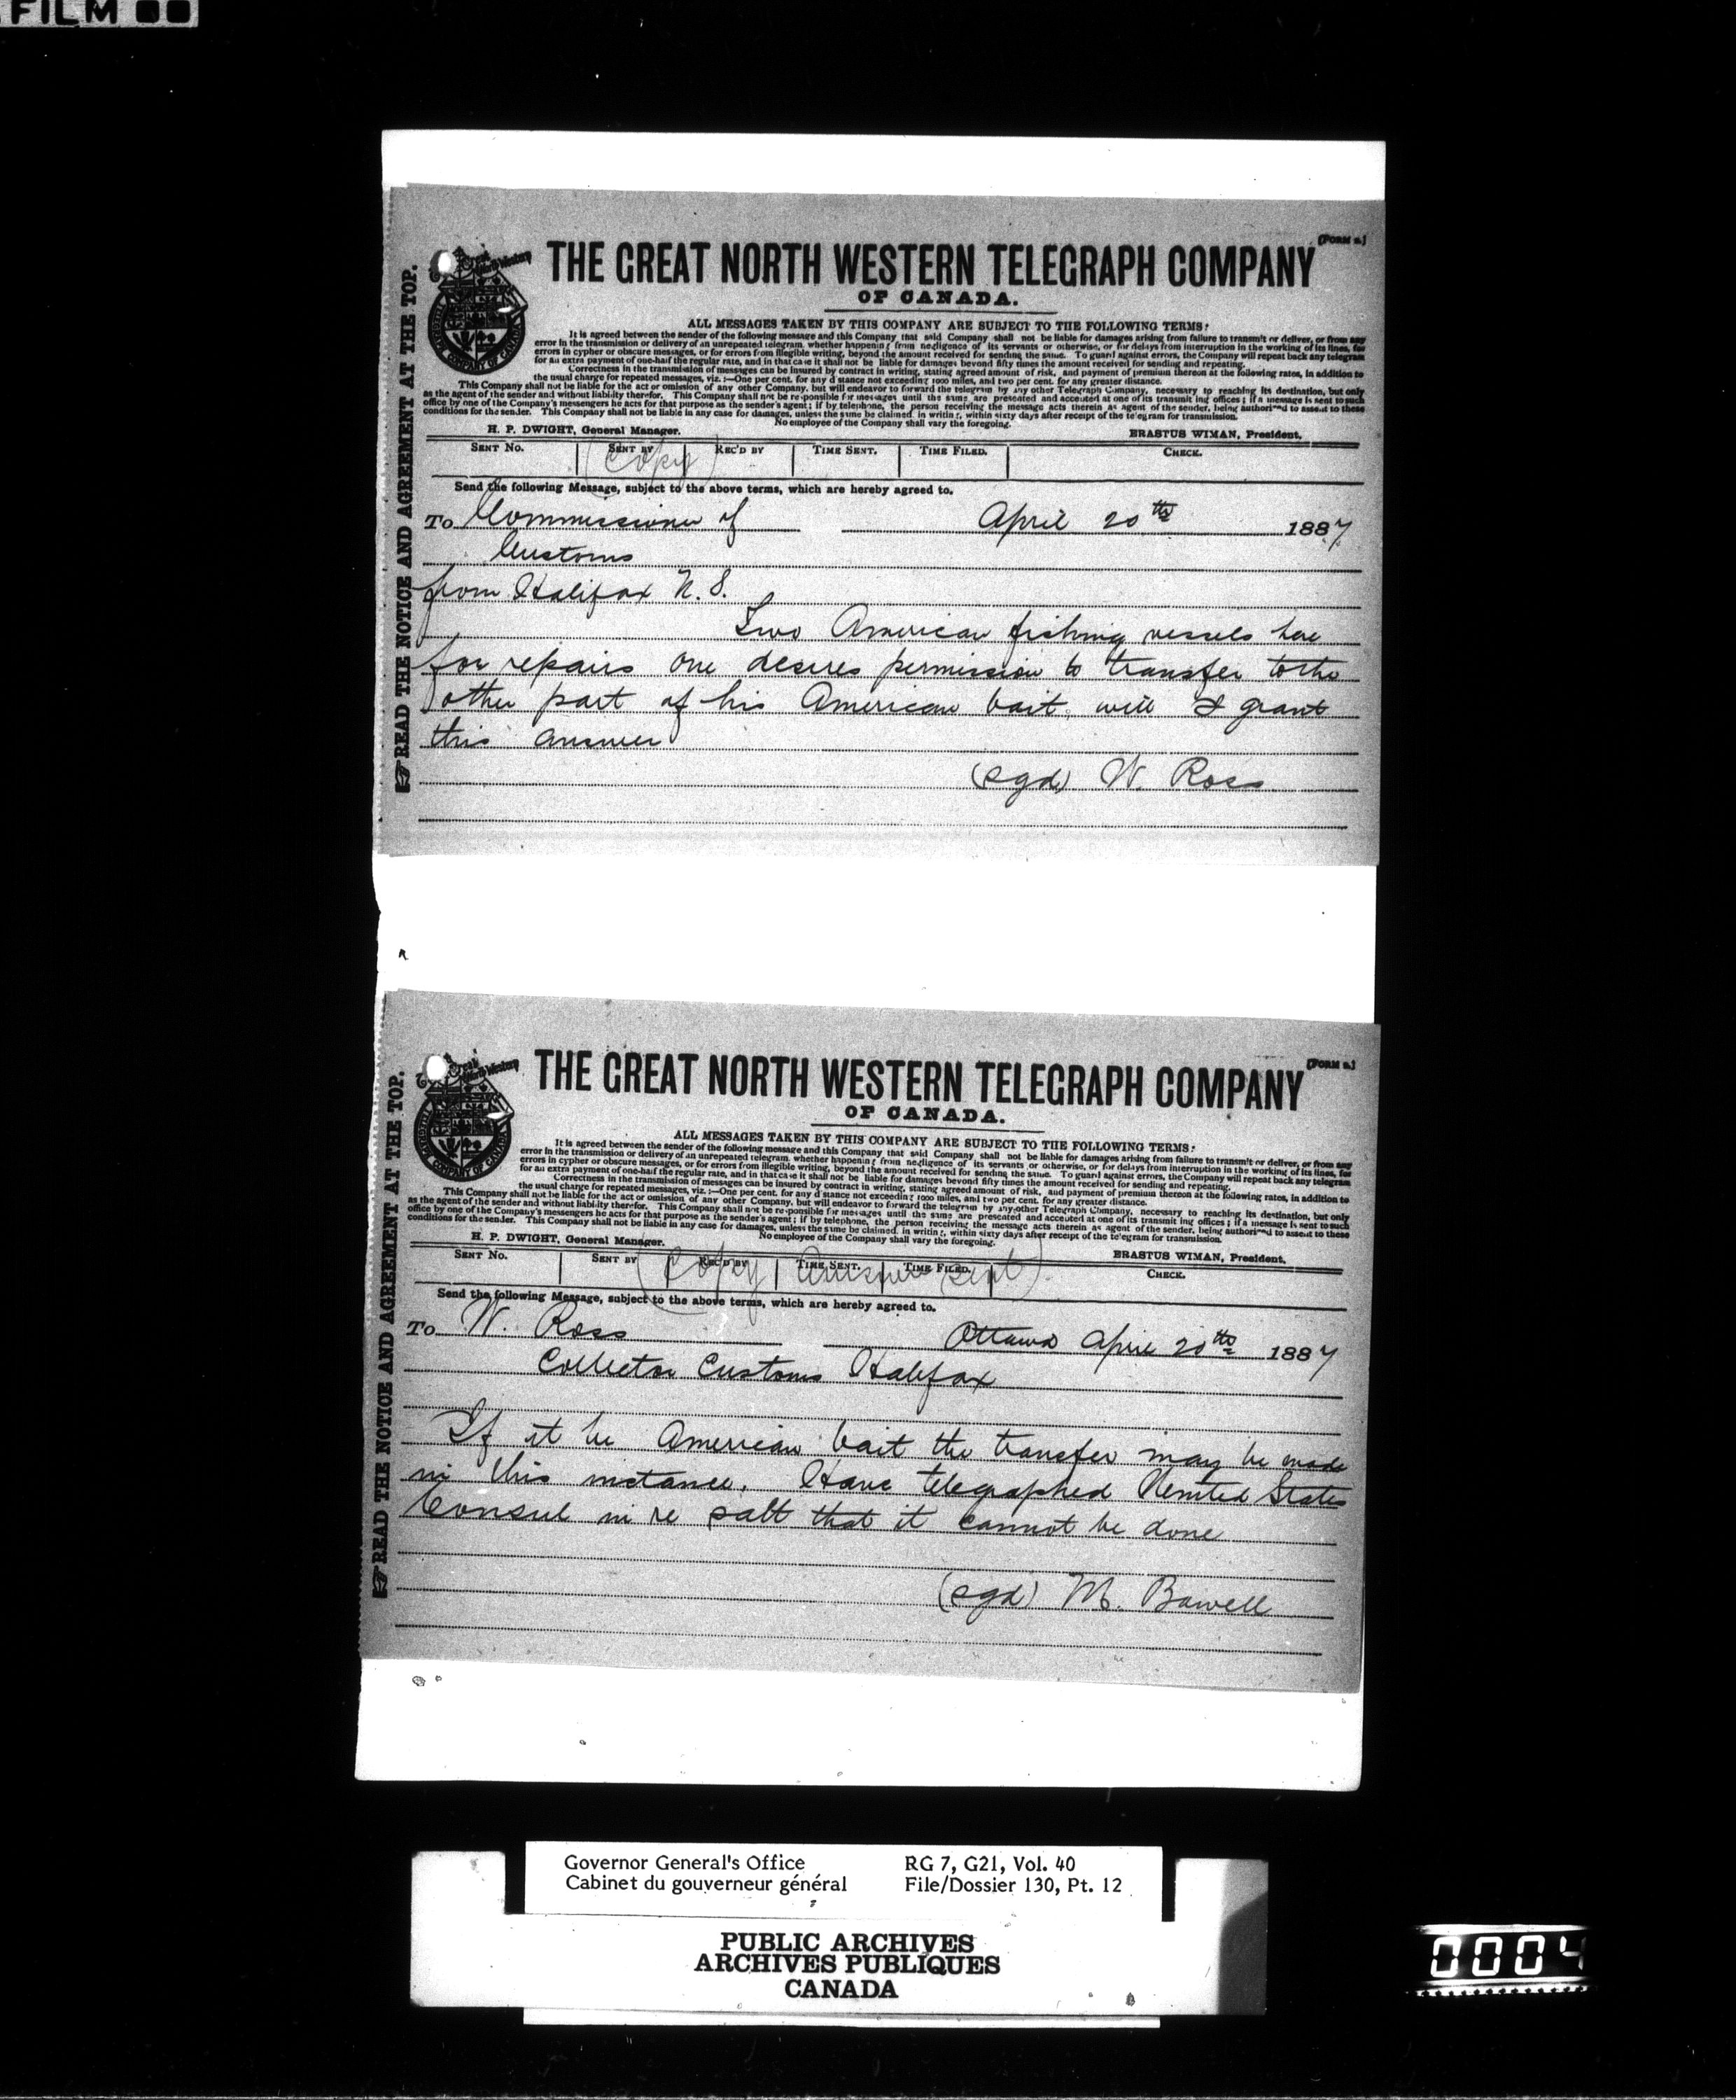 FILM
[FORM 2.]
THE GREAT NORTH WESTERN TELEGRAPH COMPANY
OF CANADA.
ALL MESSAGES TAKEN BY THIS COMPANY ARE SUBJECT TO THE FOLLOWING TERMS:
It is agreed between the sender of the following message and this Company that said Company shall not be liable for damages arising from failure to transmit or deliver, or from any
error in the transmission or delivery of an unrepeated telegram, whether happening from negligence of its servants or otherwise, or for delays from interruption in the working of its lines, for
errors in cypher or obscure messages, or for errors from illegible writing, beyond the amount received for sending the same. To guard against errors, the Company will repeat back any telegram
for an extra payment of one-half the regular rate, and in that case it shall not be liable for damages beyond fifty times the amount received for sending and repeating.
Correctness in the transmission of messages can be insured by contract in writing, stating agreed amount of risk, and payment of premium thereon at the following rates, in addition to
the usual charge for repeated messages, viz.:—One per cent. for any distance not exceeding 1000 miles, and two per cent. for any greater distance.
This Company shall not be liable for the act or omission of any other Company, but will endeavor to forward the telegram by any other Telegraph Company, necessary to reaching its destination, but only
as the agent of the sender and without liability therefor. This Company shall not be responsible for messages until the same are presented and accepted at one of its transmitting offices; if a message is sent to such
office by one of the Company's messengers he acts for that purpose as the sender's agent; if by telephone, the person receiving the message acts therein as agent of the sender, being authorized to assent to these
conditions for the sender. This Company shall not be liable in any case for damages, unless the same be claimed, in writing, within sixty days after receipt of the telegram for transmission.
No employee of the Company shall vary the foregoing.
H. P. DWIGHT, General Manager. ERASTUS WIMAN, President.
SENT NO. SENT BY REC'D BY TIME SENT. TIME FILED. CHECK.
(Copy)
Send the following Message, subject to the above terms, which are hereby agreed to.
To Commissioner of April 20th 1887
Customs
from Halifax N.S.
Two American fishing vessels here
for repairs one desires permission to transfer to the
other part of his American bait will I grant
this answer
(sgd) W. Ross
READ THE NOTICE AND AGREEMENT AT THE TOP.
[FORM 2.]
THE GREAT NORTH WESTERN TELEGRAPH COMPANY
OF CANADA.
ALL MESSAGES TAKEN BY THIS COMPANY ARE SUBJECT TO THE FOLLOWING TERMS:
It is agreed between the sender of the following message and this Company that said Company shall not be liable for damages arising from failure to transmit or deliver, or from any
error in the transmission or delivery of an unrepeated telegram, whether happening from negligence of its servants or otherwise, or for delays from interruption in the working of its lines, for
errors in cypher or obscure messages, or for errors from illegible writing, beyond the amount received for sending the same. To guard against errors, the Company will repeat back any telegram
for an extra payment of one-half the regular rate, and in that case it shall not be liable for damages beyond fifty times the amount received for sending and repeating.
Correctness in the transmission of messages can be insured by contract in writing, stating agreed amount of risk, and payment of premium thereon at the following rates, in addition to
the usual charge for repeated messages, viz.:—One per cent. for any distance not exceeding 1000 miles, and two per cent. for any greater distance.
This Company shall not be liable for the act or omission of any other Company, but will endeavor to forward the telegram by any other Telegraph Company, necessary to reaching its destination, but only
as the agent of the sender and without liability therefor. This Company shall not be responsible for messages until the same are presented and accepted at one of its transmitting offices; if a message is sent to such
office by one of the Company's messengers he acts for that purpose as the sender's agent; if by telephone, the person receiving the message acts therein as agent of the sender, being authorized to assent to these
conditions for the sender. This Company shall not be liable in any case for damages, unless the same be claimed, in writing, within sixty days after receipt of the telegram for transmission.
No employee of the Company shall vary the foregoing.
H. P. DWIGHT, General Manager. ERASTUS WIMAN, President.
SENT NO. SENT BY REC'D BY TIME SENT. TIME FILED. CHECK.
(Copy Answer sent)
Send the following Message, subject to the above terms, which are hereby agreed to.
To W. Ross Ottawa April 20th 1887
Collector Customs Halifax
If it be American bait the transfer may be made
in this instance. Have telegraphed United States
Consul in re salt that it cannot be done
(sgd) M. Bowell
READ THE NOTICE AND AGREEMENT AT THE TOP.
Governor General's Office RG 7, G21, Vol. 40
Cabinet du gouverneur général File/Dossier 130, Pt. 12
PUBLIC ARCHIVES
ARCHIVES PUBLIQUES
CANADA
0004